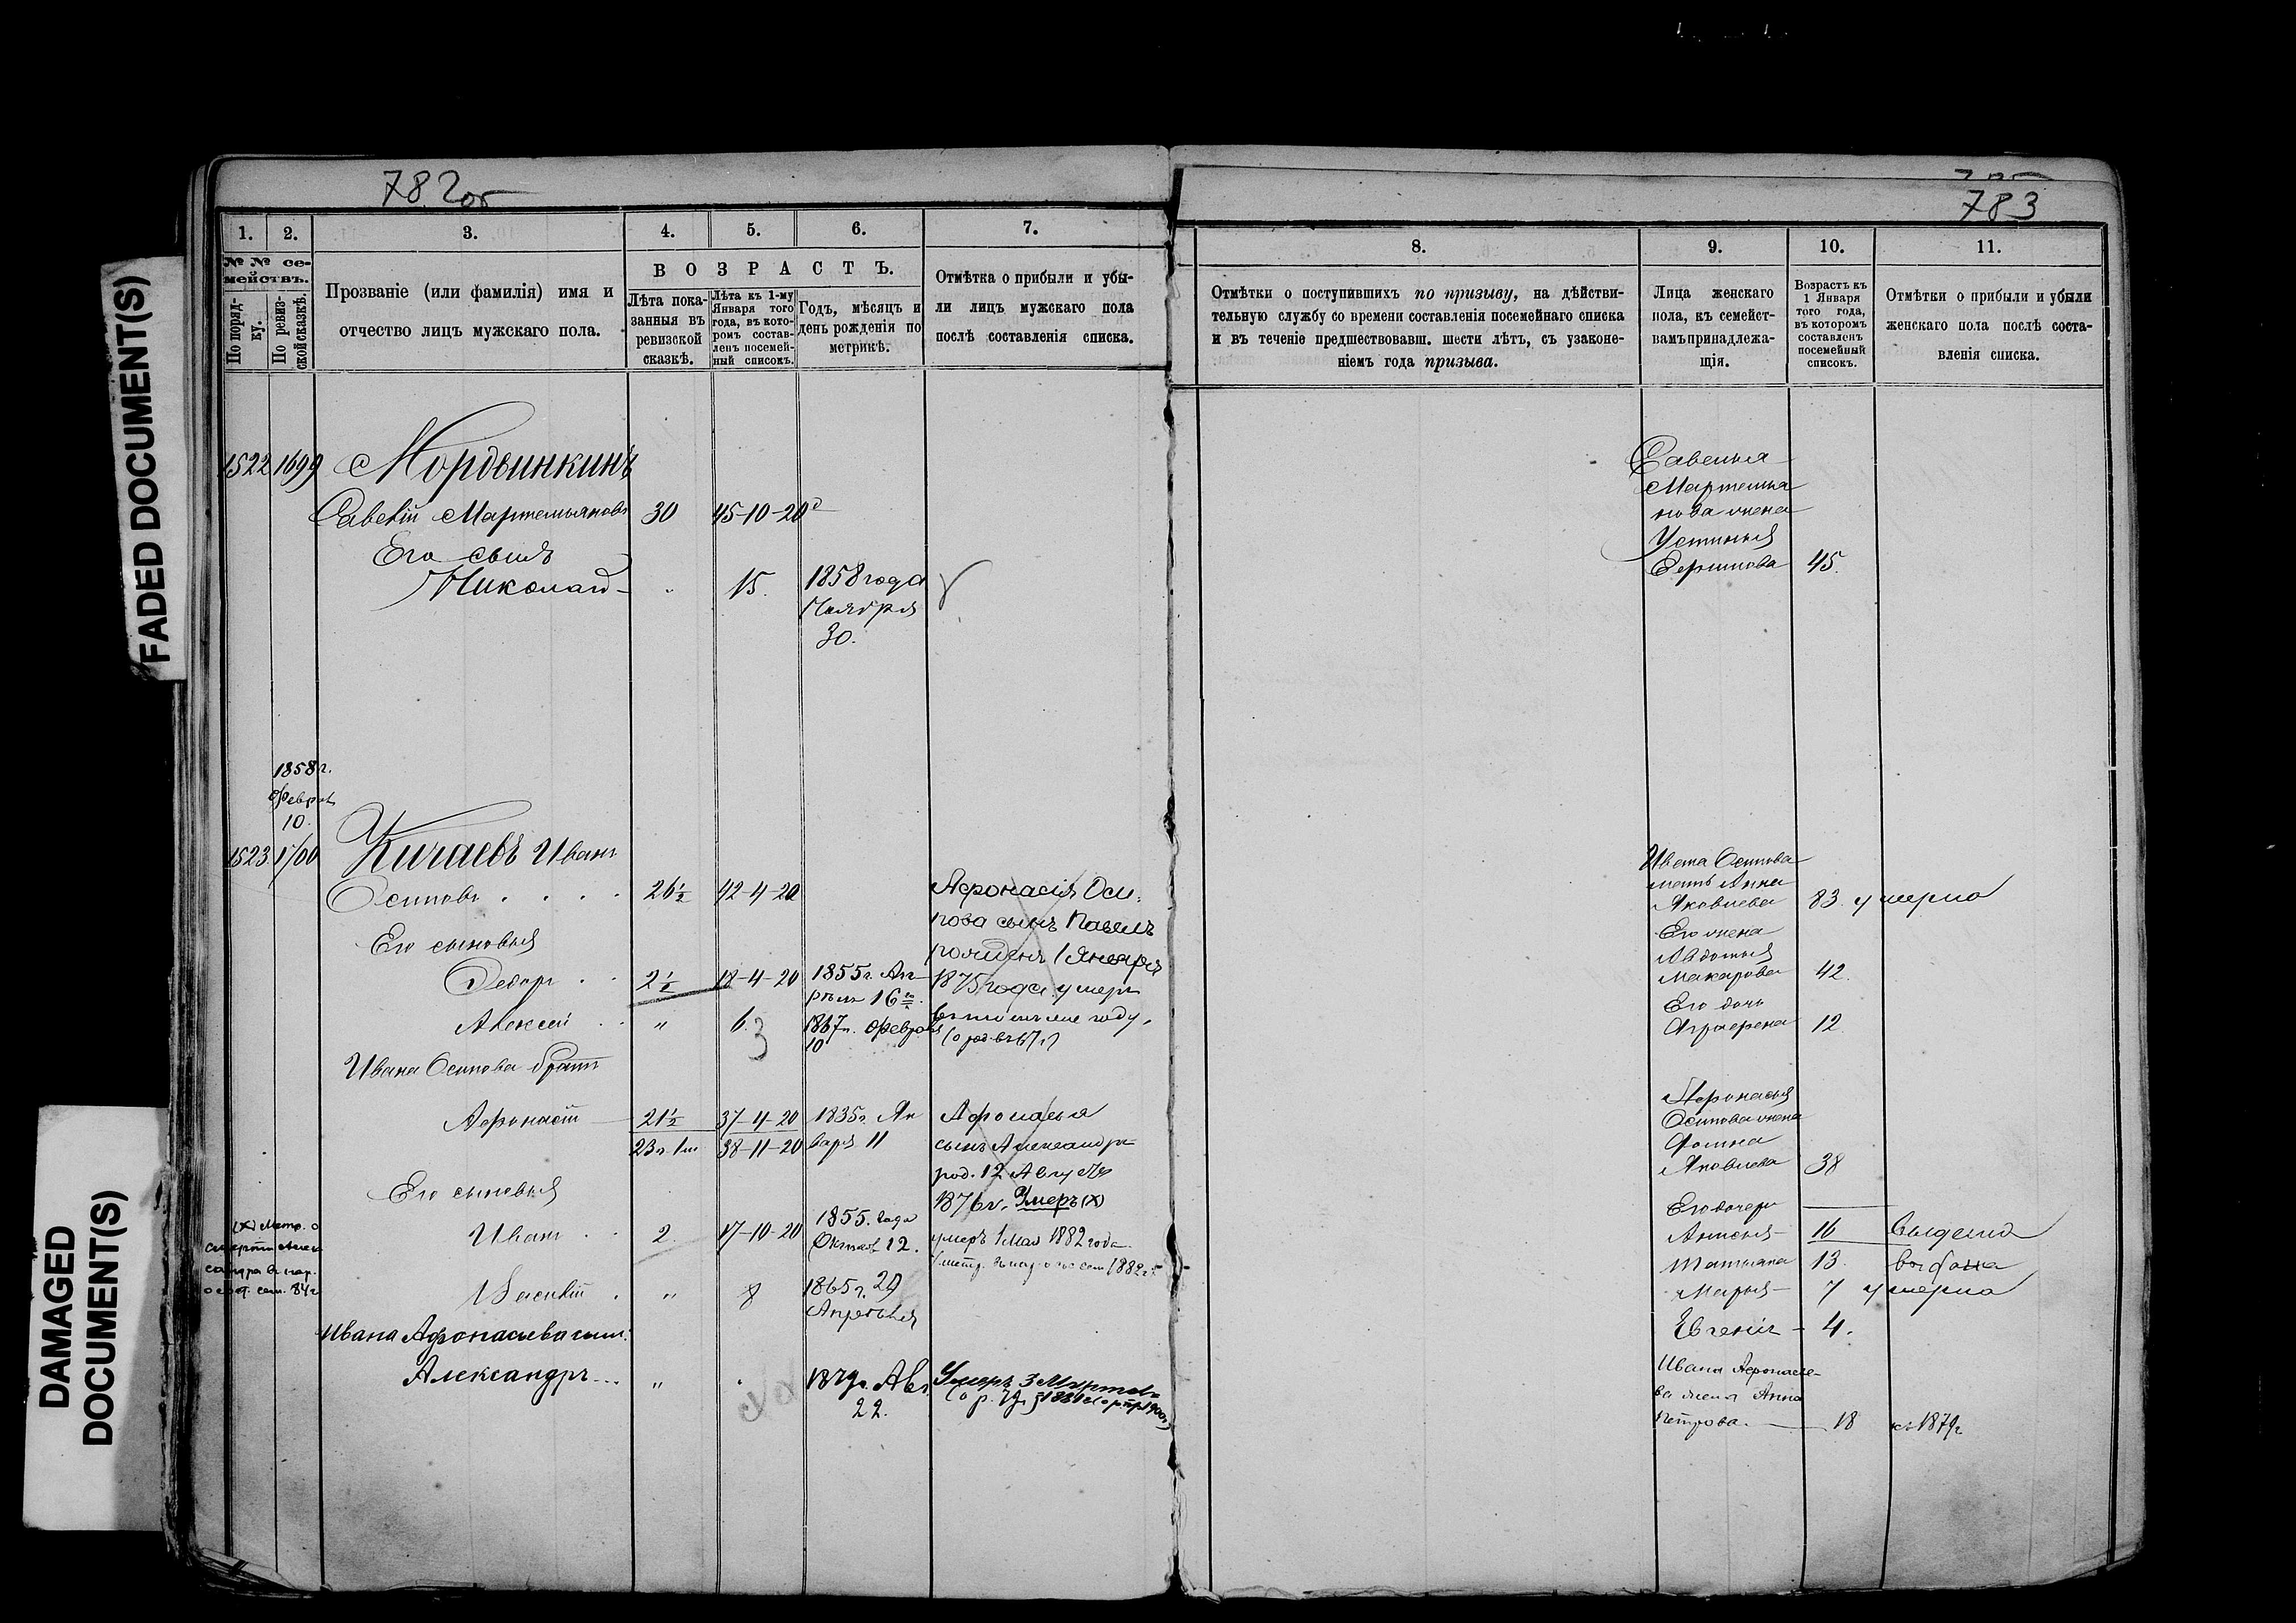 FADED DOCUMENT(S)
DAMAGED
DOCUMENT(S)
782об
1. 2. 3. 4. 5. 6. 7.
№ № се-
мействъ.
По поряд-
ку.
По ревиз-
ской сказкѣ.
Прозваніе (или фамилія) имя и
отчество лицъ мужскаго пола.
ВОЗРАСТЪ.
Лѣта пока-
занныя въ
ревизской
сказкѣ.
Лѣта къ 1-му
Января того
года, въ кото-
ромъ состав-
ленъ посемей-
ный списокъ.
Годъ, мѣсяцъ и
день рожденія по
метрикѣ.
Отмѣтка о прибыли и убы-
ли лицъ мужскаго пола
послѣ составленія списка.
1522 1699 Мордвинкинъ
Савелій Мартемьяновъ 30 45-10-20
Его сынъ
Николай - „ 15. 1858 года
Ноября
30.
1858 г.
Февраля
10.
1523 1700 Кичаевъ Иванъ
Осиповъ . . . . 26½ 42-4-20
Его сыновья
Ѳедоръ . . 2½ 18-4-20 1855 г. Ап-
рѣля 16го.
Алексѣй . . „ 6. 3 1867 г. Февраля
10
Афонасія Оси-
пова сынъ Павелъ
рожденъ 1 Января
1875 года умеръ
въ томъ же году.
Ивана Осипова братъ
Афонасій 21½ 37-4-20 1835 г. Ян
23 г. 1 м 38-11-20 варя 11
Афонасья
сынъ Александръ
род. 12 Августа
1876 г. Умеръ (х)
Его сыновья
Иванъ . . 2. 17-10-20 1855. года
Октяб 12.
умеръ 1 Мая 1882 года.
(х) Метр. о
смерти Алек
сандра въ пар.
о род. сем. 84 г
Василій . „ 8 1865 г. 29
Апрѣля
Ивана Афонасьева сынъ:
Александръ... „ 1879 г. Авг.
22.
Умеръ 3 Марта
783
8. 9. 10. 11.
Отмѣтки о поступившихъ по призыву, на дѣйстви-
тельную службу со времени составленія посемейнаго списка
и въ теченіе предшествовавш. шести лѣтъ, съ узаконе-
ніемъ года призыва.
Лица женскаго
пола, къ семейст-
вамъ принадлежа-
щія.
Возрастъ къ
1 Января
того года,
въ которомъ
составленъ
посемейный
списокъ.
Отмѣтки о прибыли и убыли
женскаго пола послѣ соста-
вленія списка.
Савелья
Мартемья
нова жена
Устинья
Ефимова 45.
Ивана Осипова
мать Анна
Яковлева 83. умерла
Его жена
Авдотья
Макарова 42.
Его дочь
Аграфена 12.
Афонасья
Осипова жена
Фаина
Яковлева 38
Его дочери
Аксинья - 16 выдена
Татьяна 13. выдана
Марья - 7 умерла
Евгенія - 4.
Ивана Афонасье-
ва жена Анна
Петрова. 18 къ 1879 г